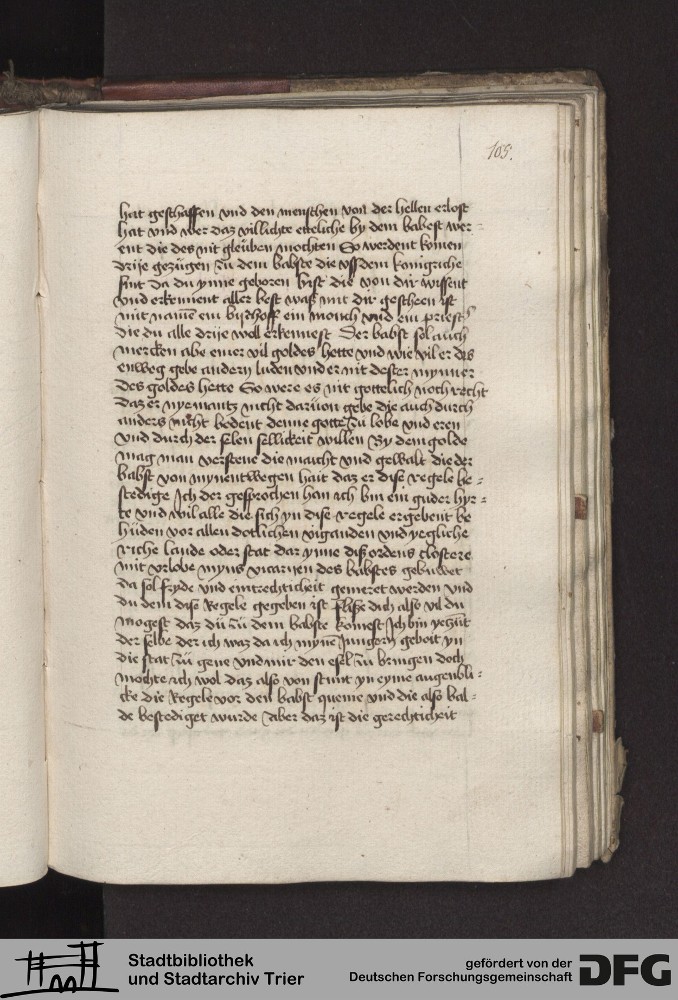 105.
hat geschaffen vnd den menschen von der hellen erlost
hat vnd wer daz villichte etteliche by dem babest wer-
ent die des nit gleuben mochten So werdent komen
drije gezugen zu dem babste die vss dem konigriche
sint da du ynne geboren byst die von dir wissent
vnd erkennent aller best was mit dir gescheen ist
mit namen ein bysschoff ein monch vnd ein priester
die du alle drije woll erkennest Der babst sol auch
mercken abe einer vil goldes hette vnd wie vil er des
enweg gebe andern luden vnd er nit dester mynner
des goldes hette So were es nit gottelich noch recht
daz er nyemantz nicht daruon gebe die auch durch
anders nicht bedent denne gotte zu lobe vnd eren
vnd durch der selen sellickeit willen By dem golde
mag man verstene die macht vnd gewalt die der
babst von mynentwegen hait daz er dise regele be-
stedige Ich der gesprochen han ich bin ein guder hyr-
te vnd wil alle die sich yn dise regele ergebent be
huden vor allen dotlichen viganden vnd yegliche
riche lande oder stat dar ynne diß ordens clostere
mit vrlobe myns vicarien des babstes gebuwet
da sol fryde vnd eintrechticheit gemeret werden vnd
du dem dise Regele gegeben ist flise dich also vil du
mogest daz du zu dem babste komest Ich bin yeczut
der selbe der ich waz da ich mynen Jungern geboit yn
die stat zu gene vnd mir den esel zu bringen doch
mochte ich wol daz also von stunt yn eyme augenbli-
cke die Regele vor den babst queme vnd die also bal-
de bestediget wurde Aber daz ist die gerechticheit
Stadtbibliothek
und Stadtarchiv Trier
gefördert von der
Deutschen Forschungsgemeinschaft
DFG